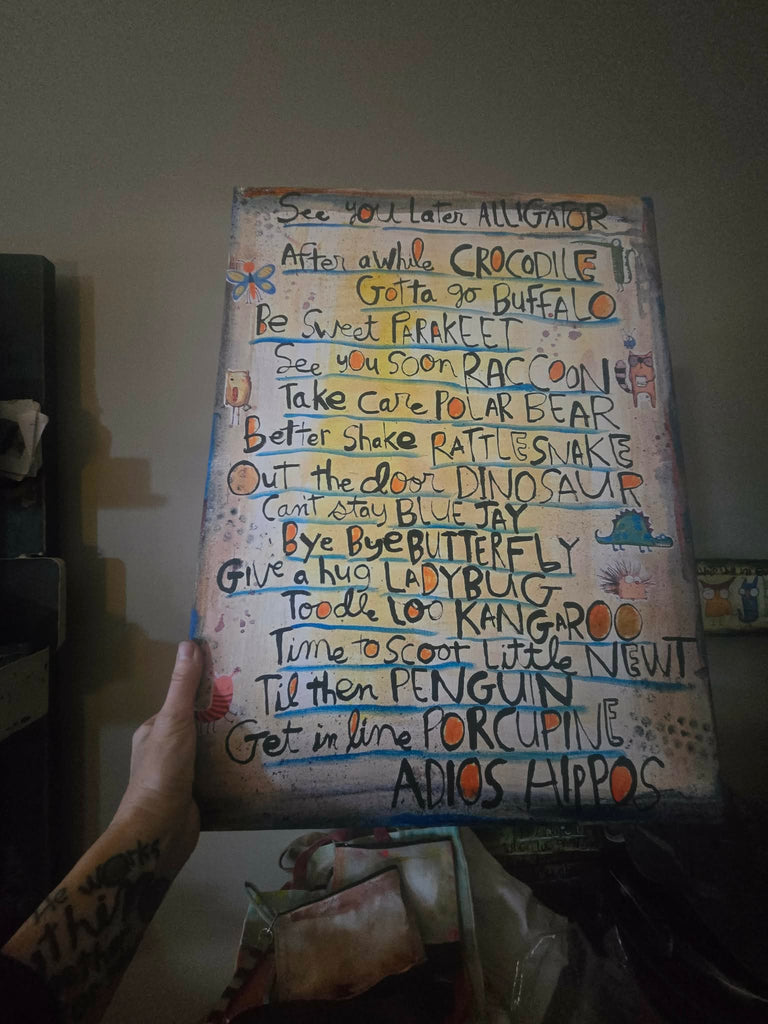 See you Later ALLIGATOR
After awhile CROCODILE
Gotta go BUFFALO
Be Sweet PARAKEET
See you soon RACCOON
Take Care POLAR BEAR
Better Shake RATTLESNAKE
Out the door DINOSAUR
Can't stay BLUE JAY
Bye Bye BUTTERFLY
Give a hug LADYBUG
Toodle Loo KANGAROO
Time to Scoot Little NEWT
Til then PENGUIN
Get in line PORCUPINE
ADIOS HIPPOS
He works